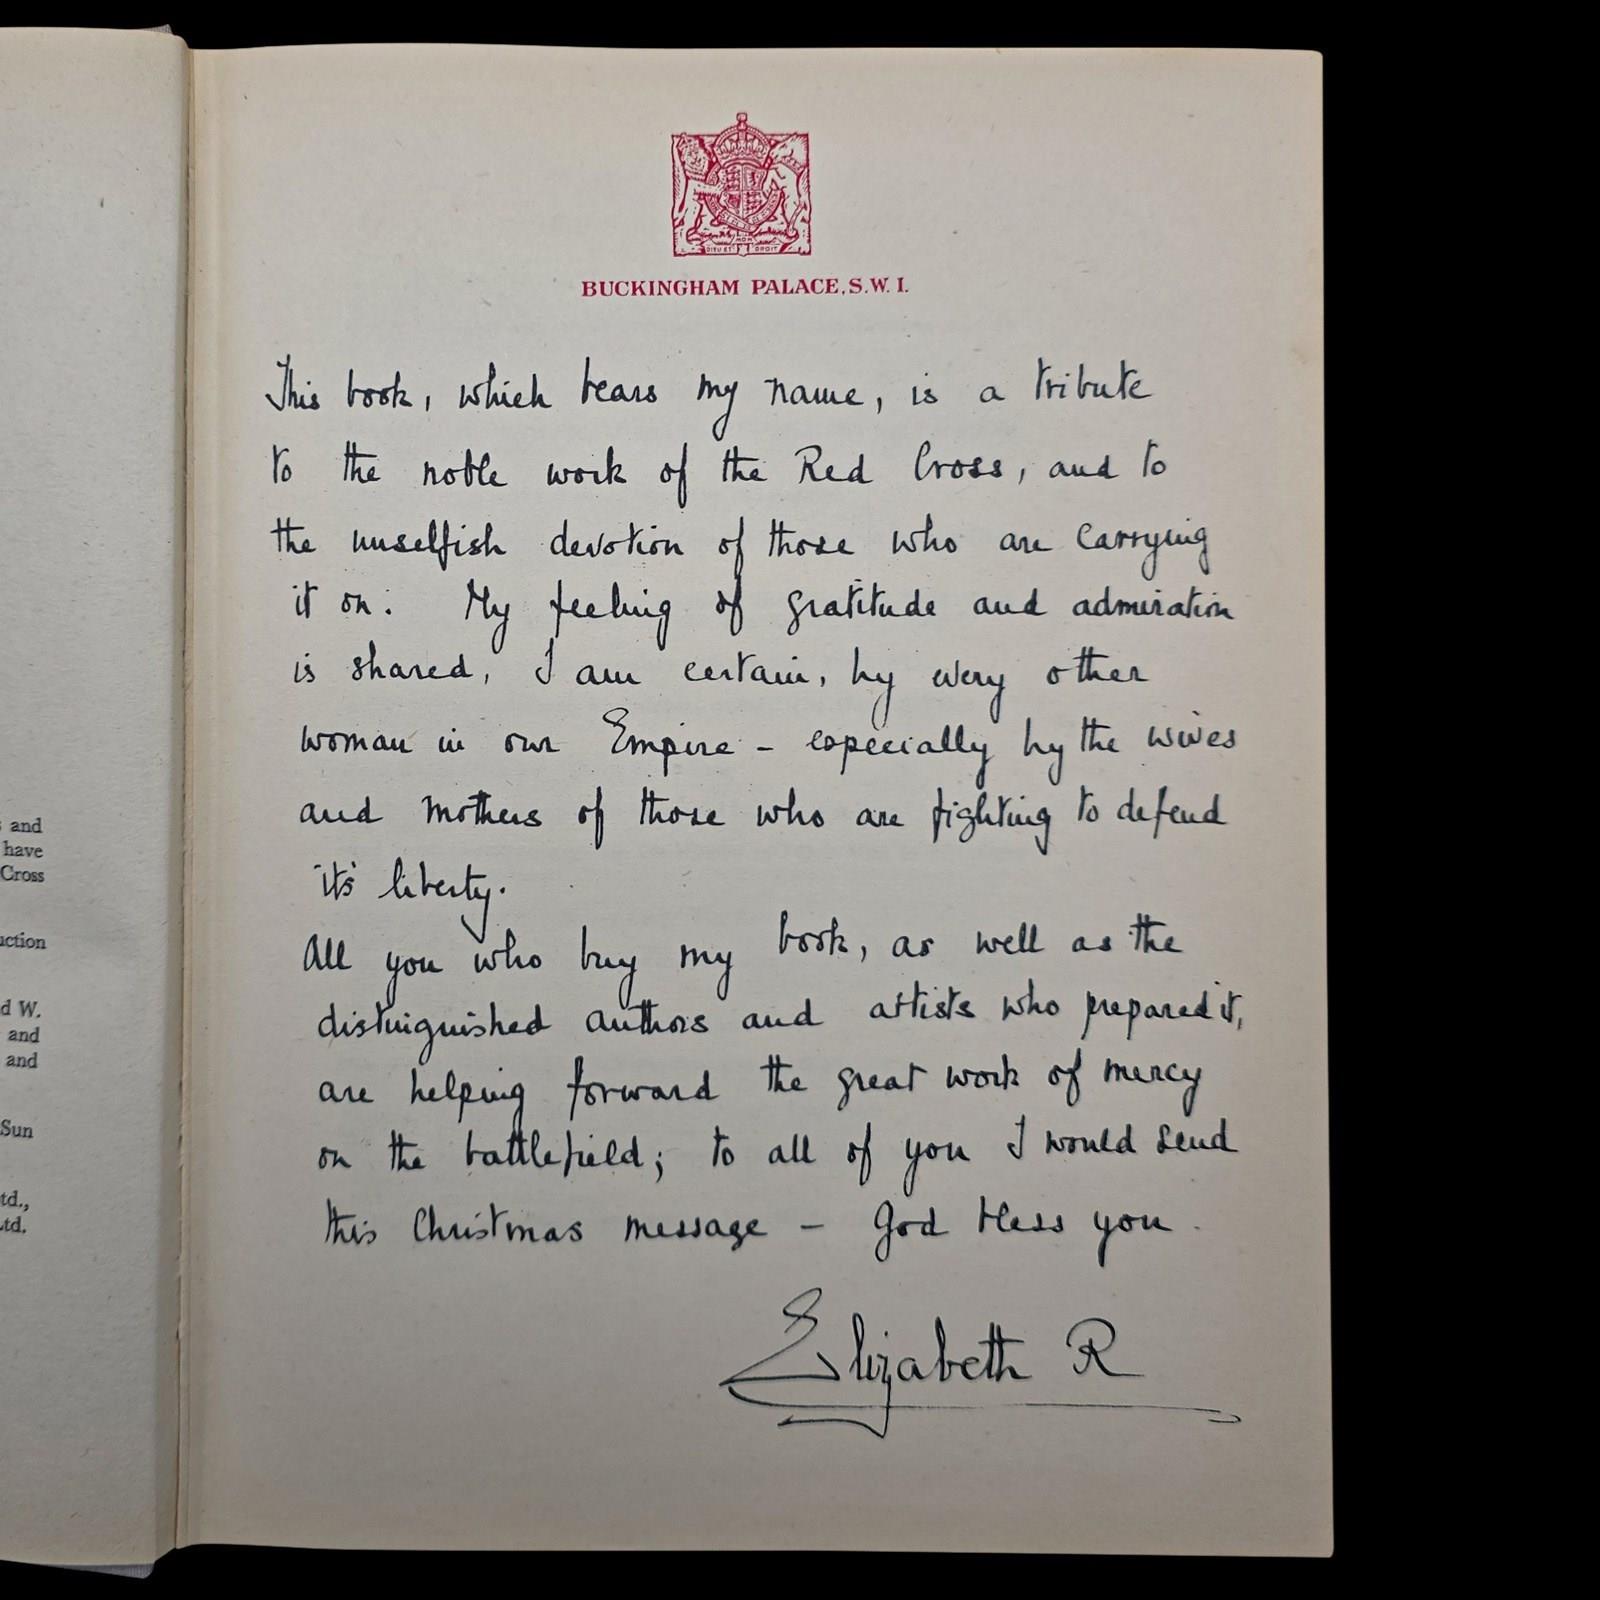 and
have
Cross
uction
d W.
and
and
Sun
td.,
Ltd.
DIEU ET MON DROIT
BUCKINGHAM PALACE, S.W. 1.
This book, which bears my name, is a tribute
to the noble work of the Red Cross, and to
the unselfish devotion of those who are carrying
it on. My feeling of gratitude and admiration
is shared, I am certain, by every other
woman in our Empire – especially by the wives
and mothers of those who are fighting to defend
it's liberty.
All you who buy my book, as well as the
distinguished authors and artists who prepared it,
are helping forward the great work of mercy
on the battlefield; to all of you I would send
this Christmas message – God bless you.
Elizabeth R